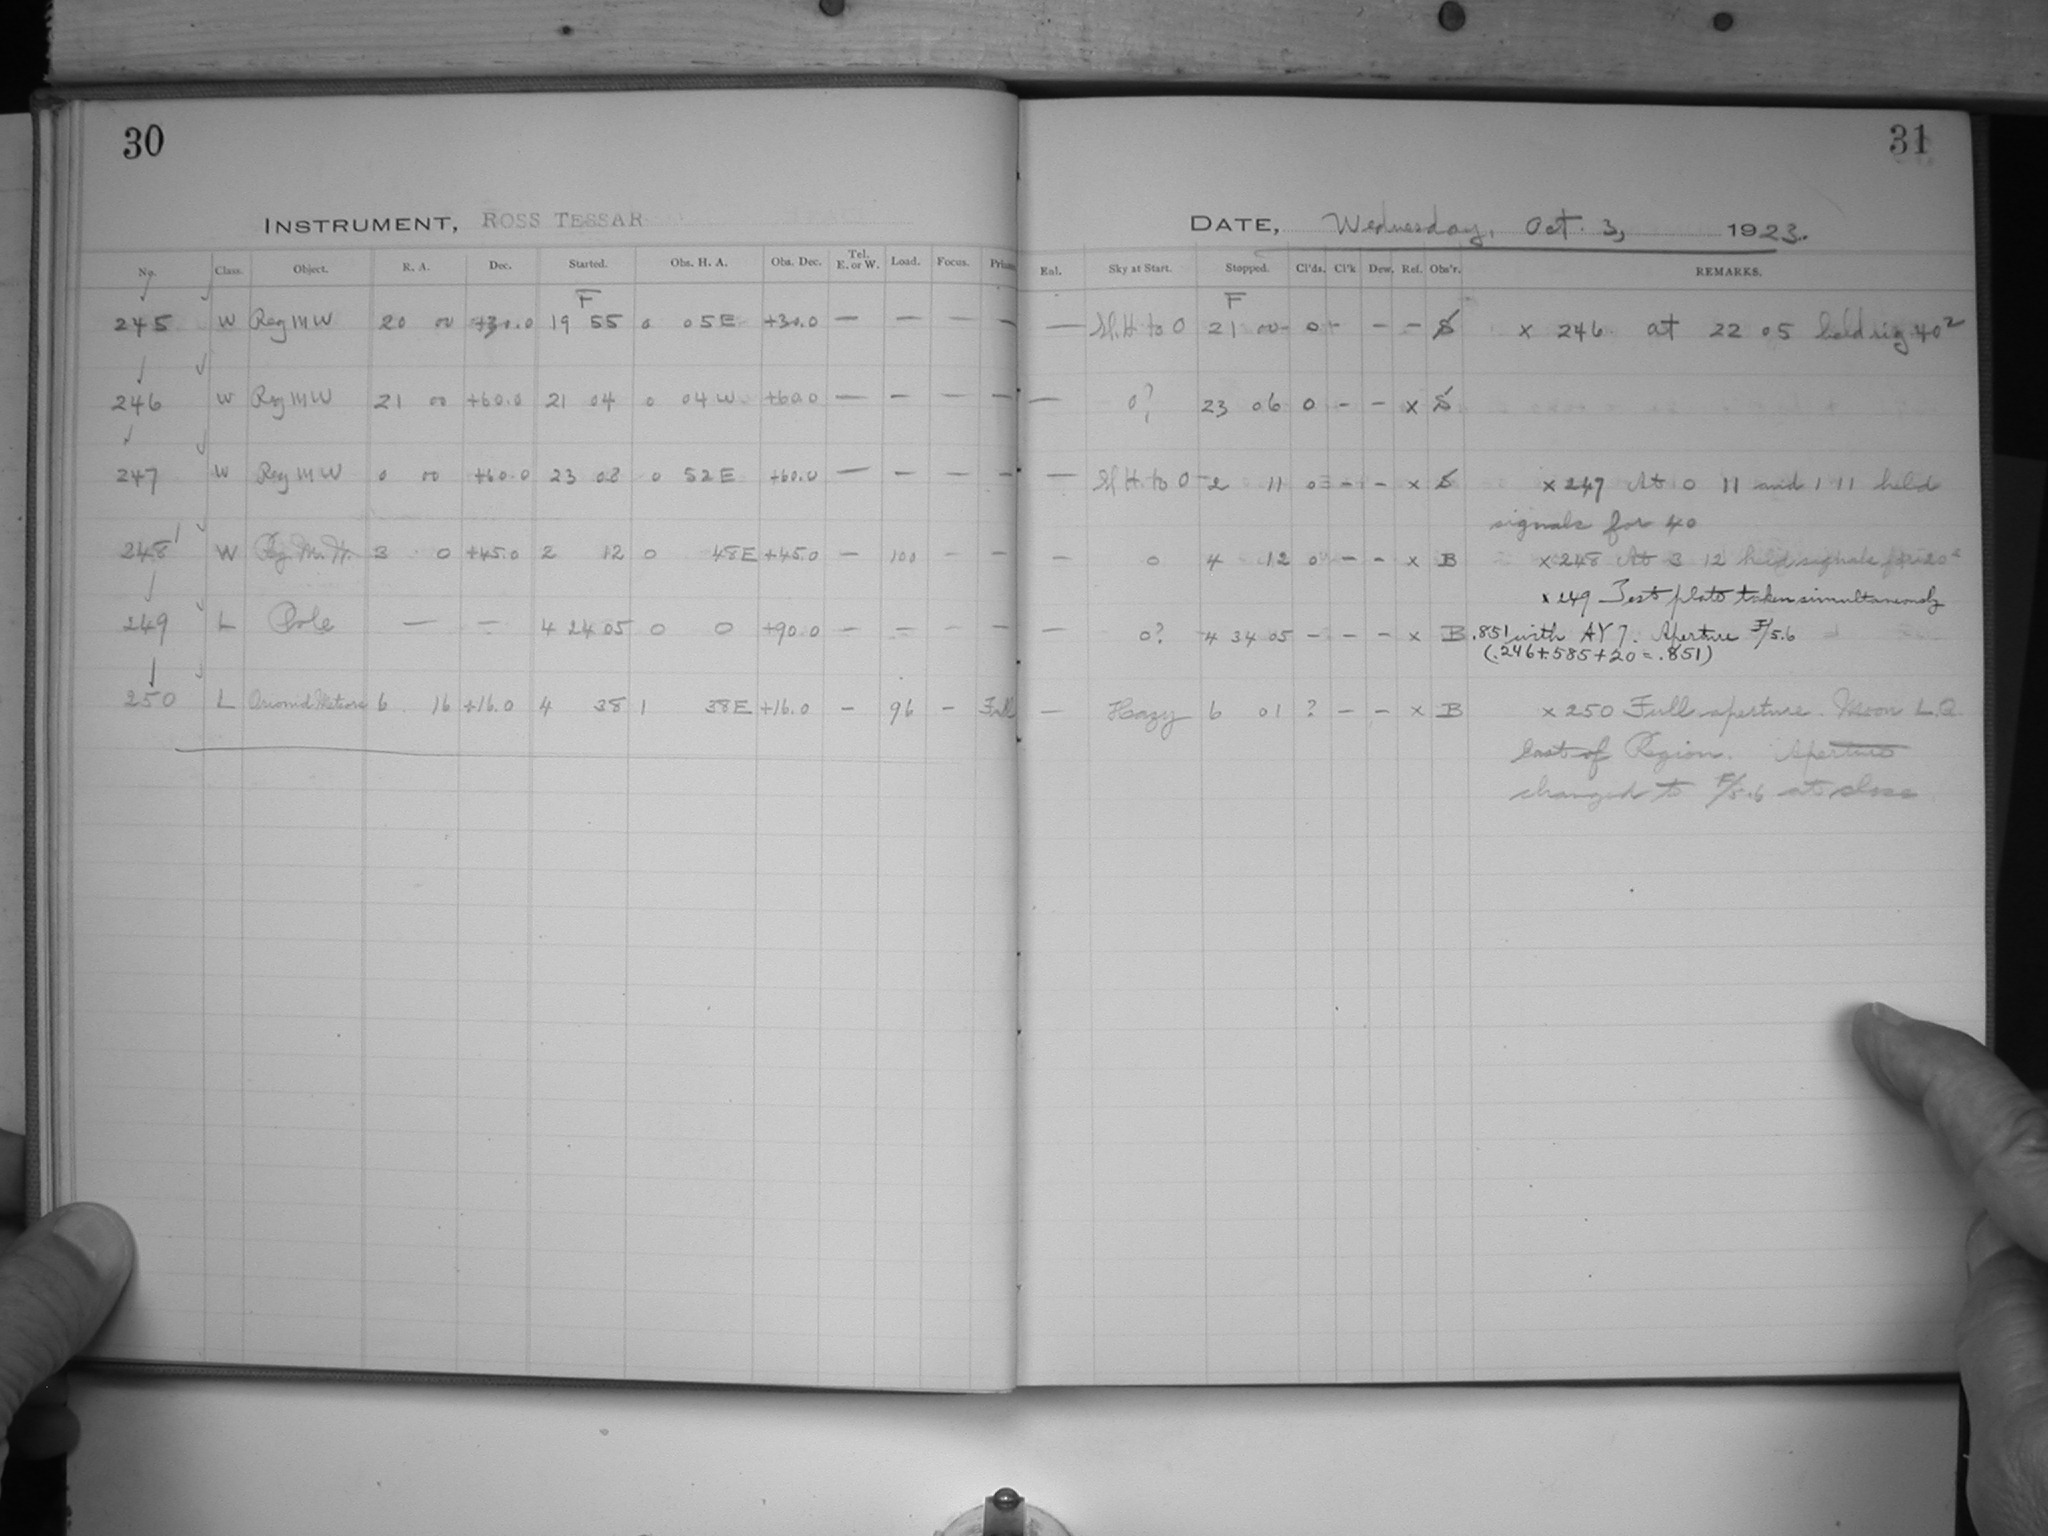 30
INSTRUMENT, ROSS TESSAR
No. Class. Object. R. A. Dec. Started. Obs. H. A. Obs. Dec. Tel. E. or W. Load. Focus.
F
245 W Reg MW 20 00 +30.0 19 55 0 05E +30.0 — — — —
246 W Reg MW 21 00 +60.0 21 04 0 04 W +60.0 — — — —
247 W Reg MW 0 00 +60.0 23 08 0 52E +60.0 — — — —
248 W Reg M.W. 3 0 +45.0 2 12 0 48E +45.0 — 100 — —
249 L Pole — — 4 24 05 0 0 +90.0 — — — —
250 L Orionid Meteors 6 16 +16.0 4 38 1 38E +16.0 — 96 — Full
31
DATE, Wednesday, Oct. 3, 1923.
Eal. Sky at Start. Stopped. Cl'ds. Cl'k Dew. Ref. Obs'r. REMARKS.
F
— H to 0 21 00 0 - - - S x 246 at 22 05 held sig 40
— 0? 23 06 0 - - x S
— H. to 0 2 11 0 - - x S x 247 At 0 11 and 1 11 held
signals for 40
— 0 4 12 0 - - x B x 248 At 3 12 held signals for 20
x 249 Test plate taken simultaneously
— 0? 4 34 05 - - - x B .851 with AY 7. Aperture F/5.6
(.246+.585+20=.851)
— Hazy 6 01 ? - - x B x 250 Full aperture. Moon L.Q.
East of Region. Aperture
changed to F/5.6 at close